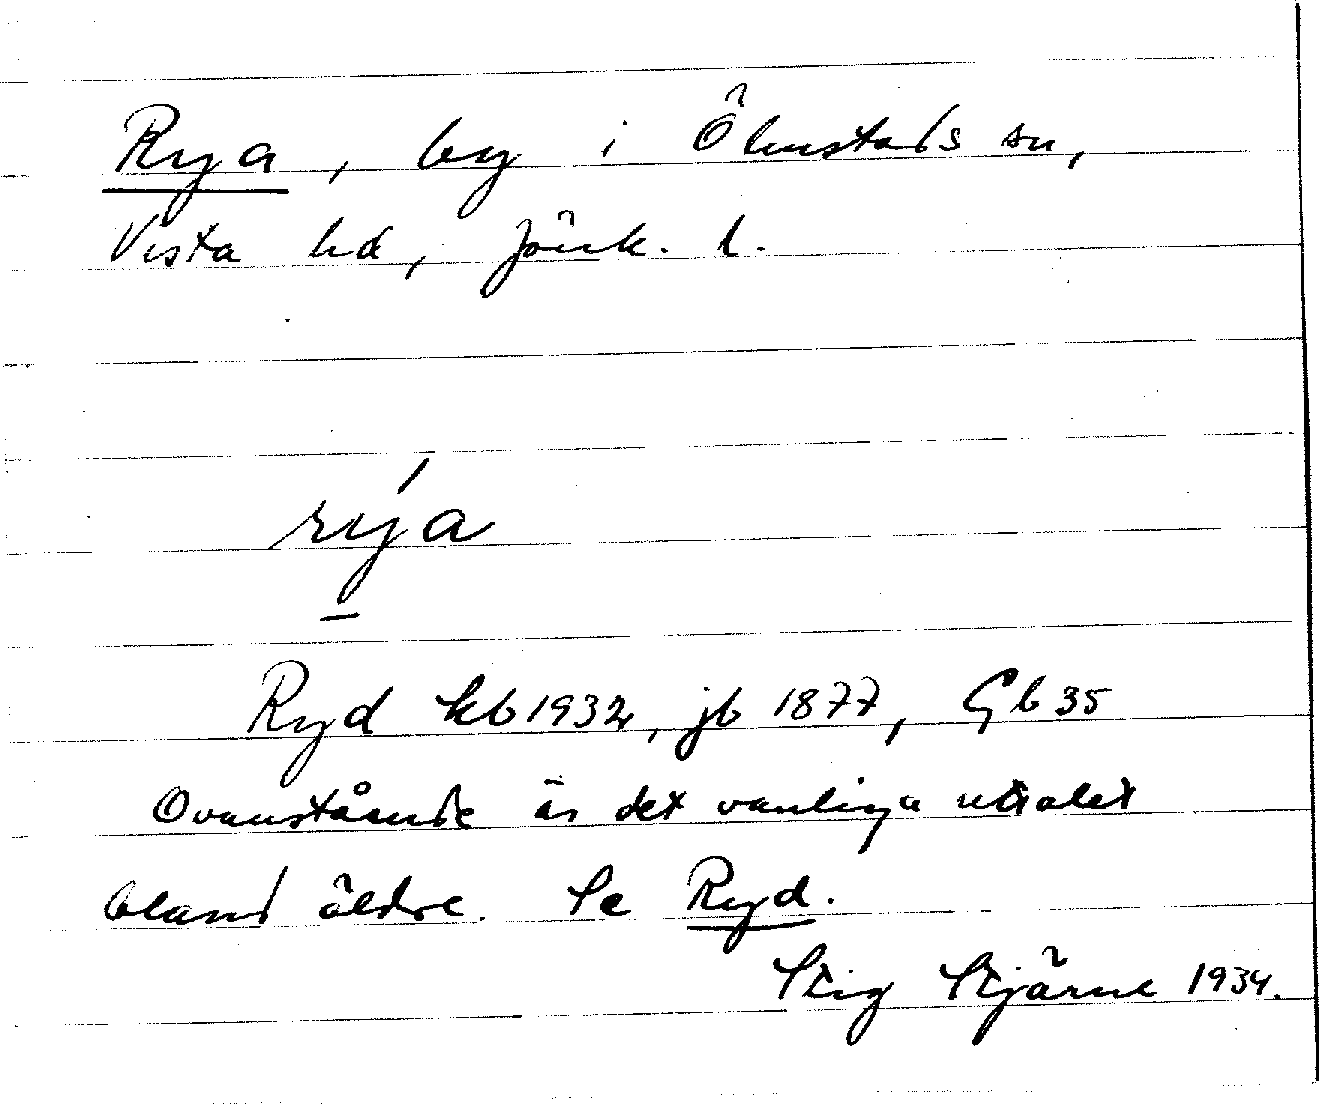 Rya, by i Ölmstads sn,
Vista hd, Jönk. l.
rýa
Ryd kb 1932, jb 1877, Gb 35
Ovanstående är det vanliga uttalet
bland äldre. Se Ryd.
Stig Stjärne 1934.